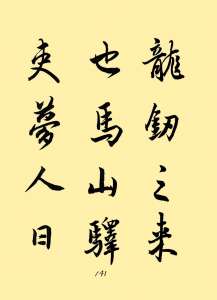 龍劒之来
也馬山驛
吏夢人日
141